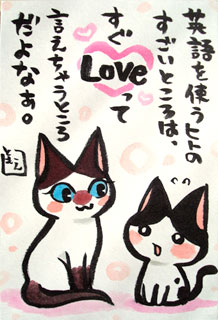 英語を使うヒトの
すごいところは、
すぐLoveって
言えちゃうところ
だよなぁ。